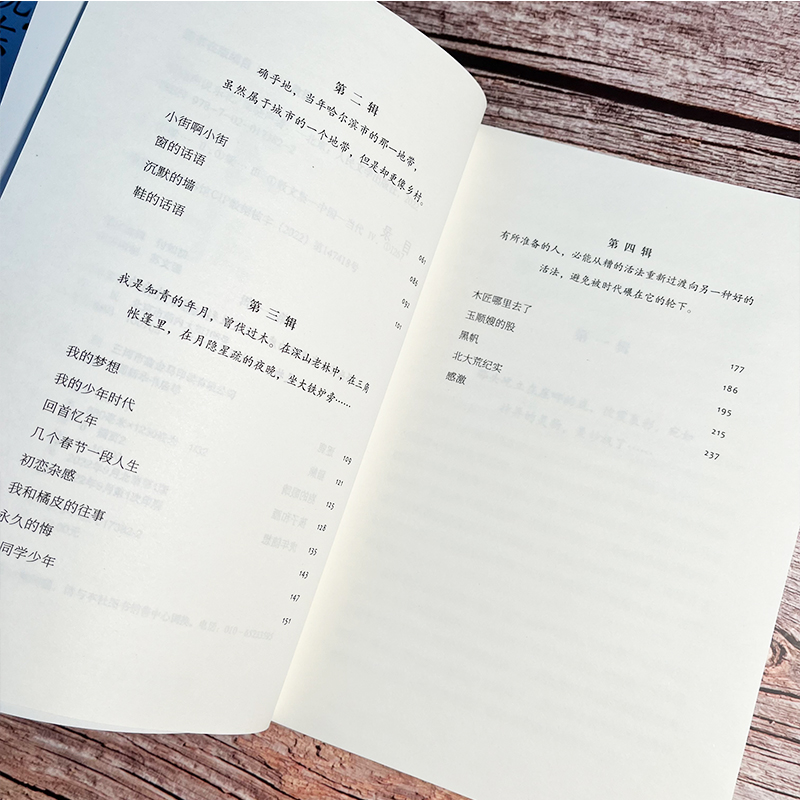 第二辑
确乎地，当年哈尔滨市的那一地带，
虽然属于城市的一个地带，但是却更像乡村。
小街啊小街 081
窗的话语 086
沉默的墙 092
鞋的话语 101
第三辑
我是知青的年月，曾伐过木。在深山老林中，在三角
帐篷里，在月隐星疏的夜晚，坐大铁炉旁……
我的梦想 109
我的少年时代 121
回首忆年 125
几个春节一段人生 128
初恋杂感 135
我和橘皮的往事 143
永久的悔 147
同学少年 151
第四辑
有所准备的人，必能从糟的活法重新过渡向另一种好的
活法，避免被时代碾在它的轮下。
木匠哪里去了 177
玉顺嫂的股 186
黑帆 195
北大荒纪实 215
感激 237